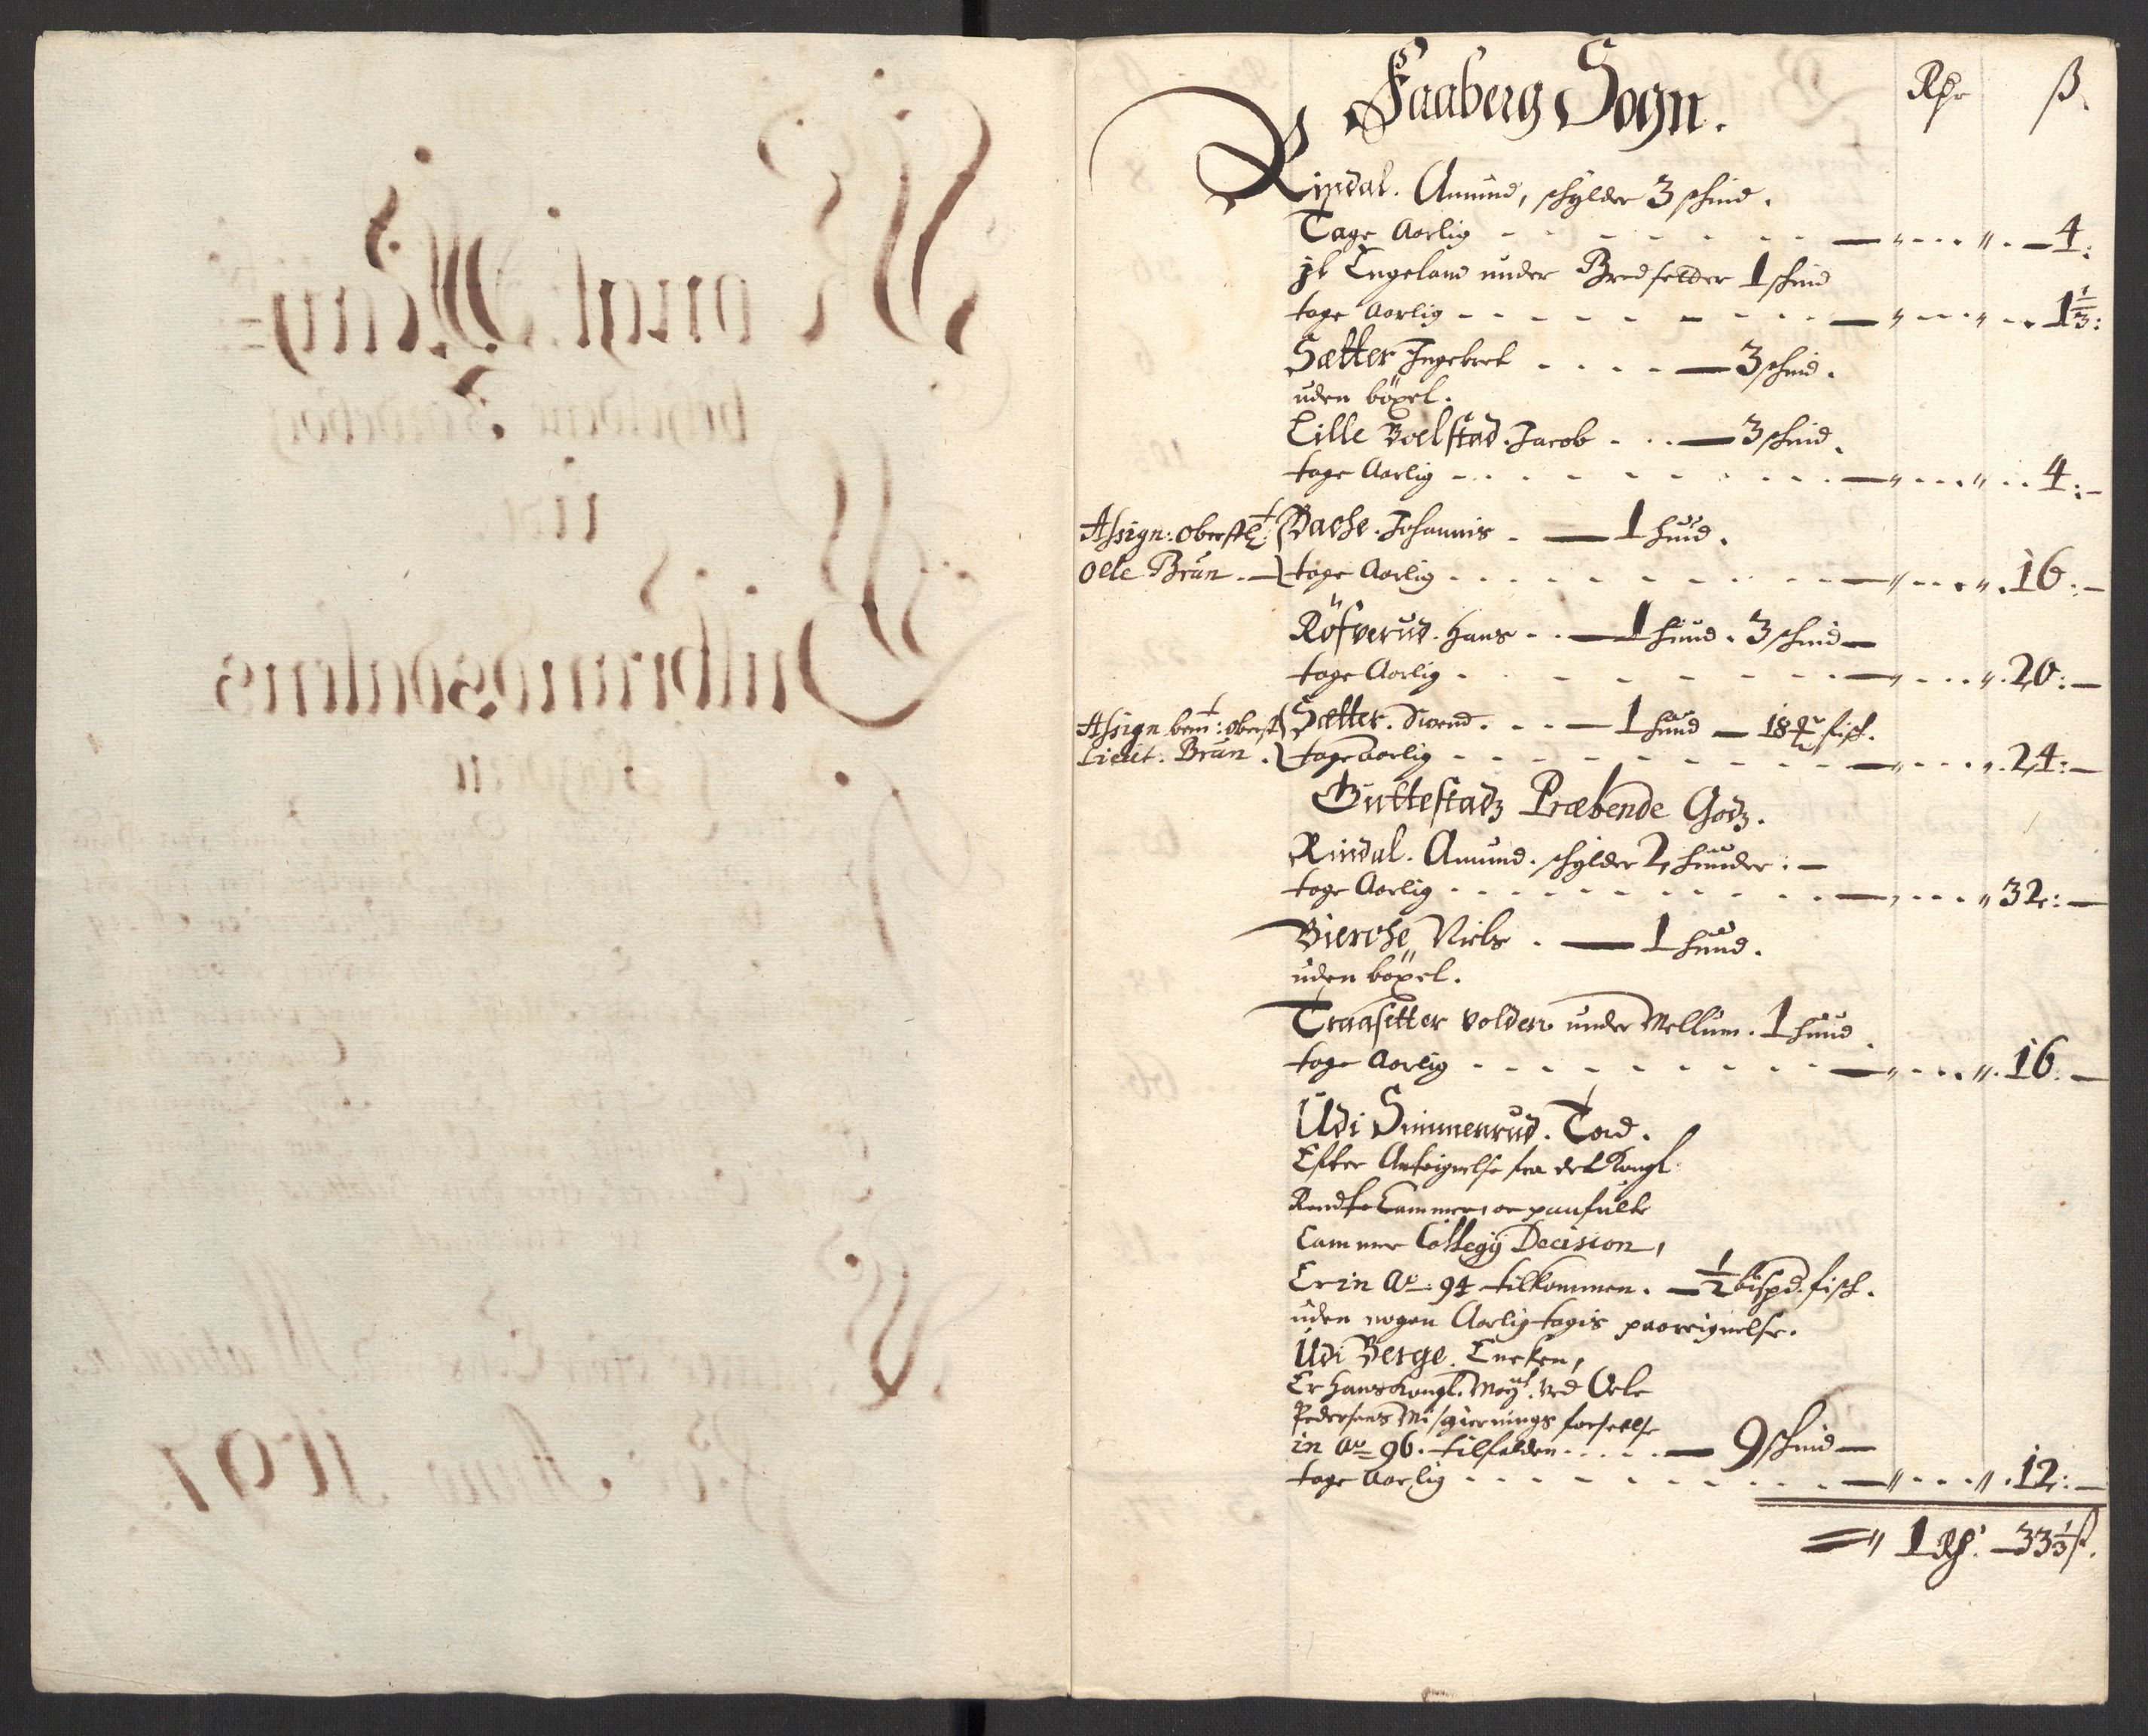 Faaberg Sogn.
Rdr ß
Rindal. Amund, schylder 3 schind.
Tage Aarlig - - - - - " - - " - 4:
jt Engeland under Bredsetter 1 schind
tage Aarlig - - - - - " - - " - 1 1/3:
Sætter Ingebret - - - 3 schind.
uden böxel.
Lille Boelstad. Jacob - - 3 schind.
tage Aarlig - - - - - " - - " - 4:
Assign: Oberstl: Bache. Johannis - 1 huud.
Olle Brun. tage Aarlig - - - - - " - - " 16:
Röfverud. Hans - - 1 huud. 3 schind
tage Aarlig - - - - - " - - " 20:
Assign bem: oberst Sætter. Svend. - - 1 huud - 18 fisch.
Lieut: Brun. tage Aarlig - - - - - " - - " 24:
Guttestadz Præbende Godz.
Rindal. Amund. schylder 2 huuder.
tage Aarlig - - - - - " - - " 32:
Bierche Niels. - 1 huud.
uden böxel.
Traasetter volden under Mellum. 1 huud.
tage Aarlig - - - - - " - - " 16:
Udi Simmenrud. Tord.
Efter Anteignelse fra det Kongl:
Rendte Cammer, oc paafulte
Cammer Collegij Decision,
Er in Ao: 94 tilkommen. - 1/2 bispd. fisch.
uden nogen Aarlig tagis paaseignelse.
Udi Berge. Encken,
Er Hans Kongl. Mayt. ved Ole
Pedersens Misgiernings forseelse
in Ao 96. tilfalden - - - 9 schind
tage Aarlig - - - - - " - - " 12:
" 1 Rd. - 33 1/3 ß.
Kongl: May
Gulbrandsdalens
Anno 1697